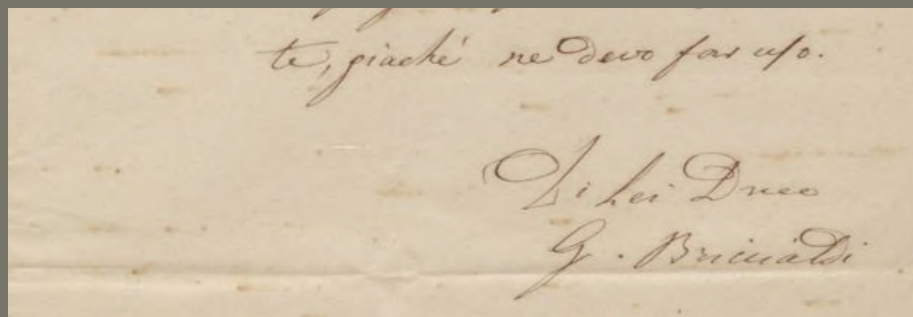 te, giaché ne devo far uso.
Di Lei Dmeo
G. Briccialdi